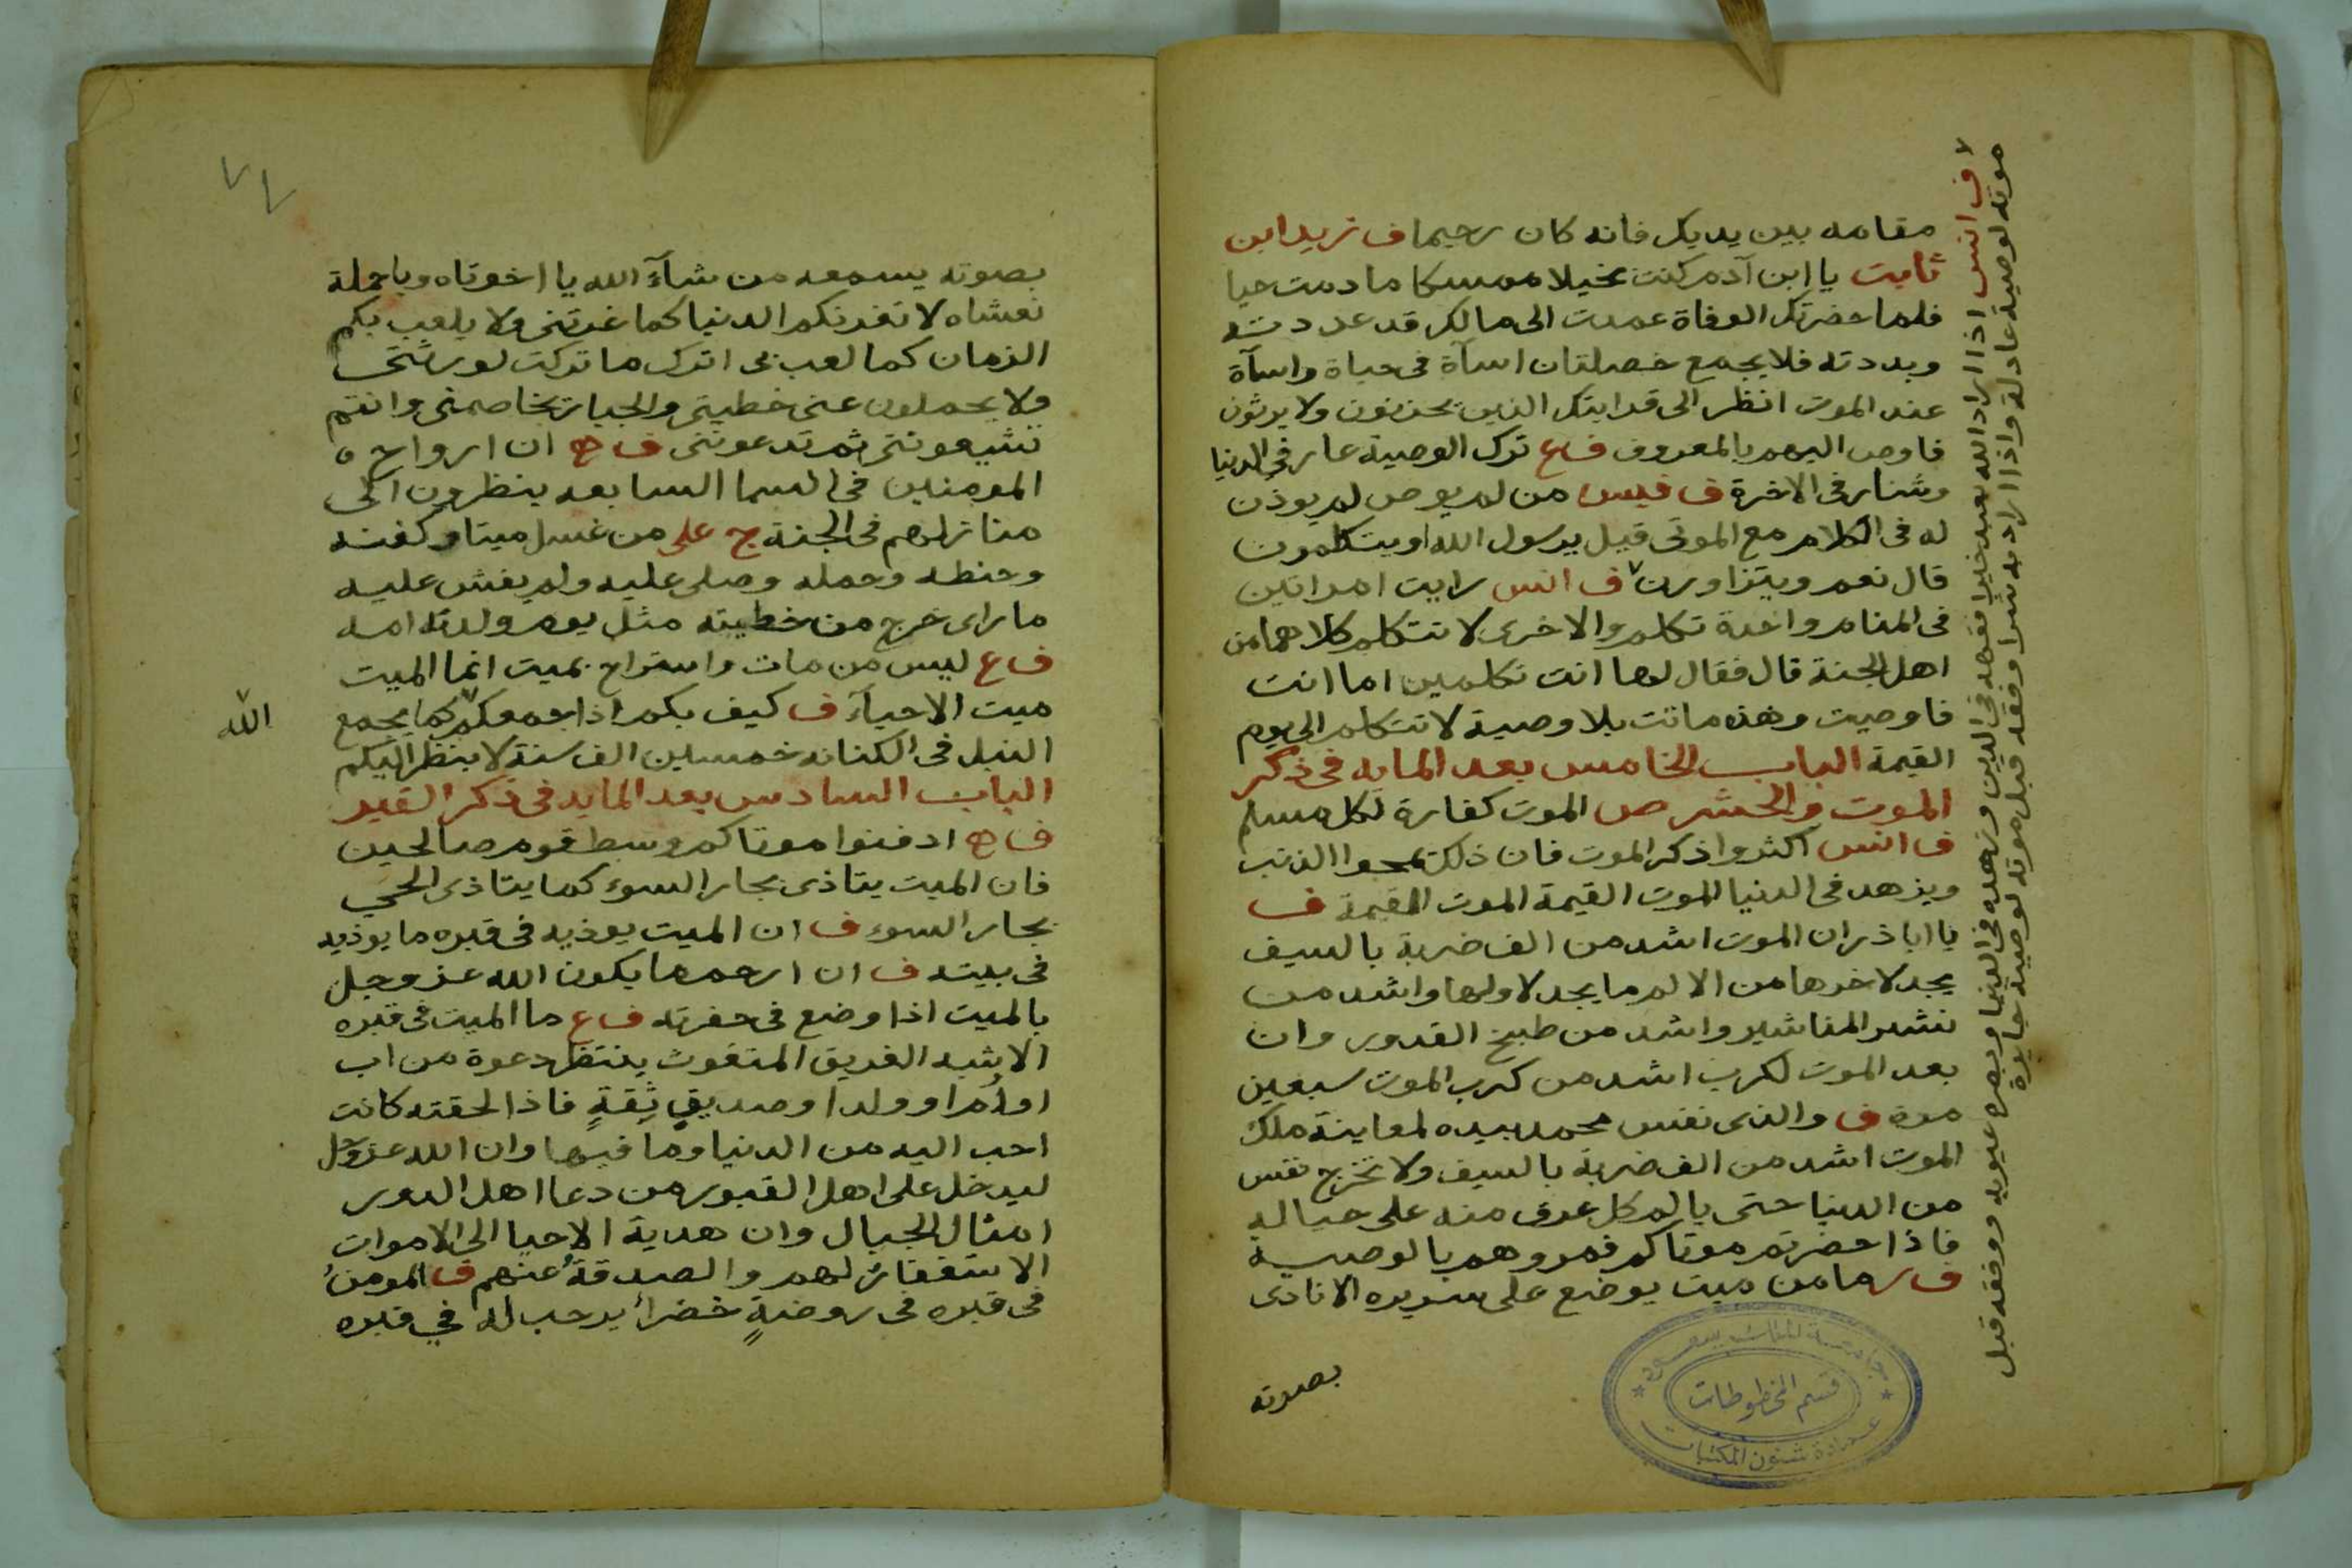 مقامه بين يديك فانه كان رحيما ف زيد ابن
ثابت يا ابن آدم كنت بخيلا ممسكا ما دمت حيا
فلما حضرتك الوفاة عمدت الى مالك قد عددته
وبددته فلا يجمع خصلتان اسآة فى حياة واسآة
عند الموت انظر الى قرابتك الذين يحزنون ولا يرثون
فاوص اليهم بالمعروف ف ع ترك الوصية عار فى الدنيا
وشنار فى الاخرة ف قيس من لم يوص لم يوذن
له فى الكلام مع الموتى قيل يرسول الله او يتكلمون
قال نعم ويتزاورن ف انس رايت امراتين
فى المنام واحدة تكلم والاخرى لا تتكلم كلاهما من
اهل الجنة قال فقال لها انت تكلمين اما انت
فاوصيت وهذه ماتت بلا وصية لا تتكلم الى يوم
القيمة الباب الخامس بعد المايه فى ذكر
الموت والحشر ص الموت كفارة لكل مسلم
ف انس اكثروا ذكر الموت فان ذلك يمحوا الذنب
ويزهد فى الدنيا الموت القيمة الموت القيمة ف
يا اباذر ان الموت اشد من الف ضربة بالسيف
يجد لاخرها من الالم ما يجد لاولها واشد من
نشر المناشير واشد من طبيخ القدور وان
بعد الموت لكرب اشد من كرب الموت سبعين
مرة ف والذى نفس محمد بيده لمعاينة ملك
الموت اشد من الف ضربة بالسيف ولا تخرج نفس
من الدنيا حتى يالم كل عرق منه على حياله
فاذا حضرتم موتاكم فمروهم بالوصية
ف ر ما من ميت يوضع على سريره الا نادى
بصوته
لا ف انس اذا اراد الله بعبد خيرا فقهه فى الدين وزهده فى الدنيا وبصره عيوبه ووفقه قبل
موته لوصية عادلة واذا اراد به شرا وفقه قبل موته لوصية جايرة
جامعة الملك سعود
قسم المخطوطات
عمادة شئون المكتبات
٧٧
بصوته يسمعه من شآء الله يا اخوتاه ويا حملة
نعشاه لا تغرنكم الدنيا كما غرتنى ولا يلعب بكم
الزمان كما لعب بى اترك ما تركت لورثتى
ولا يحملون عنى خطيتى والجبار يخاصمنى وانتم
تشيعوننى ثم تدعوننى ف ه ان ارواح
المومنين فى السما السابعه ينظرون الى
منازلهم فى الجنة ج على من غسل ميتا وكفنه
وحنطه وحمله وصلى عليه ولم يفش عليه
ما راى خرج من خطيته مثل يوم ولدته امه
ف ع ليس من مات واستراح بميت انما الميت
ميت الاحيآء ف كيف بكم اذا جمعكم كما يجمع
الله
النبل فى الكنانه خمسين الف سنة لا ينظر اليكم
الباب السادس بعد المايه فى ذكر القبر
ف ه ادفنوا موتاكم وسط قوم صالحين
فان الميت يتاذى بجار السوء كما يتاذى الحي
بجار السوء ف ان الميت يوذيه فى قبره ما يوذيه
فى بيته ف ان ارحم ما يكون الله عز وجل
بالميت اذا وضع فى حفرته ف ع ما الميت فى قبره
الا شبه الغريق المتغوث ينتظر دعوة من اب
او اُم او ولد او صديق ثِقةٍ فاذا لحقته كانت
احب اليه من الدنيا وما فيها وان الله عز وجل
ليدخل على اهل القبور من دعا اهل الدور
امثال الجبال وان هدية الاحيا الى الاموات
الاستغفار لهم والصدقةُ عنهم ف المومنُ
فى قبره فى روضةٍ خضرا يرحب له في قبره